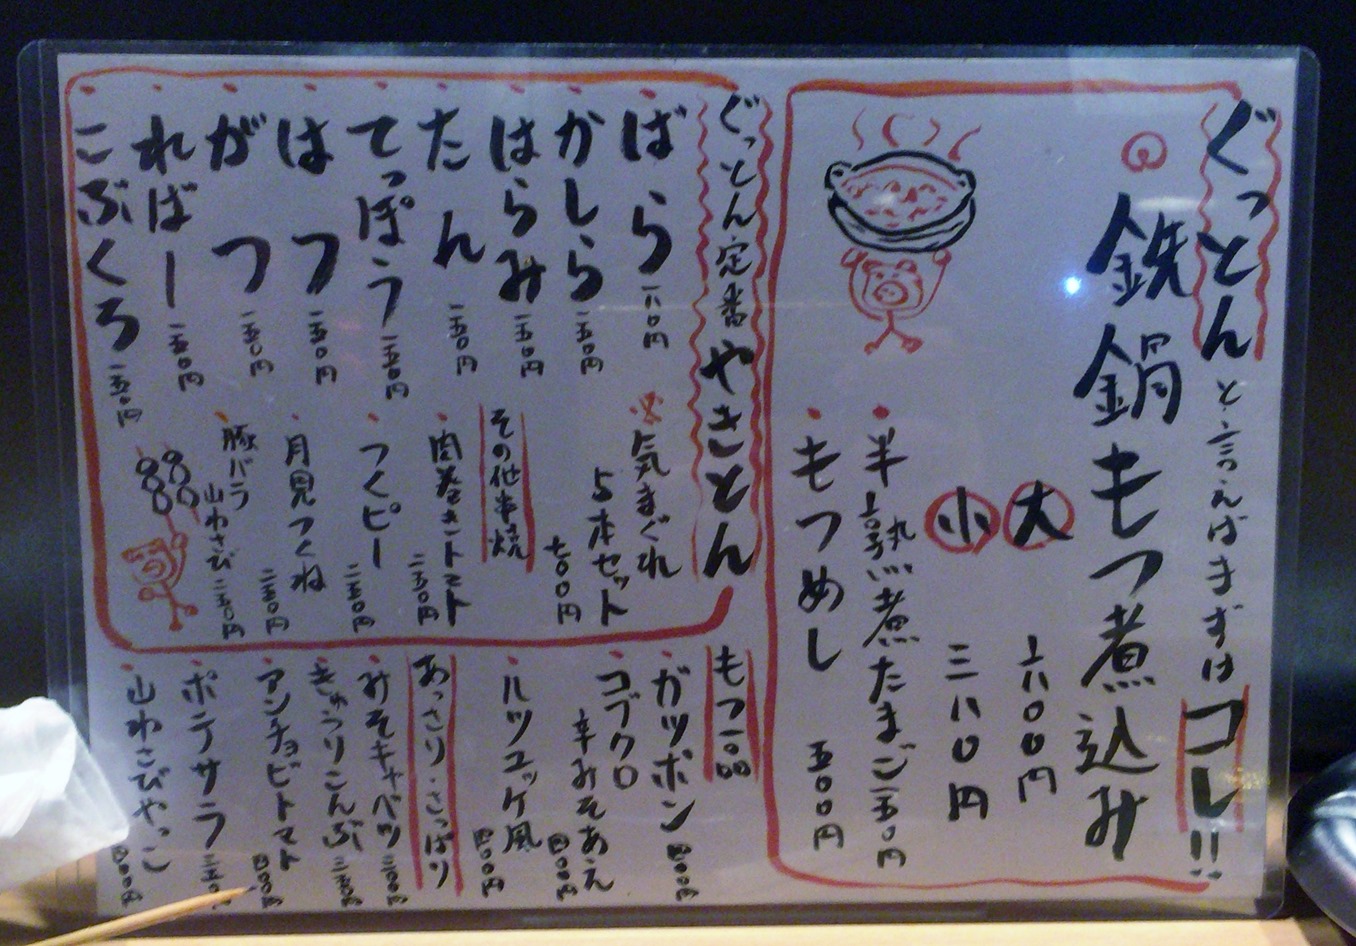 ぐっとんと言えばまずはコレ!!
鉄鍋もつ煮込み
大 一六〇〇円
小 三八〇円
半熟煮たまご 一五〇円
もつめし 五〇〇円
ぐっとん定番やきとん
ばら 二八〇円
かしら 二五〇円
はらみ 二五〇円
たん 二五〇円
てっぽう 二五〇円
はつ 二五〇円
がつ 二五〇円
ればー 二五〇円
こぶくろ 二五〇円
※気まぐれ
5本セット
七〇〇円
その他串焼
肉巻きトマト 二五〇円
つくピー 二五〇円
月見つくね 二五〇円
豚バラ
山わさび 二五〇円
もつ一品
ガツポン 四〇〇円
コブクロ
辛みそあえ 四〇〇円
ハツユッケ風 四〇〇円
あっさり・さっぱり
みそキャベツ 三〇〇円
きゅうりこんぶ 三五〇円
アンチョビトマト 四〇〇円
ポテサラ
山わさびやっこ 四〇〇円